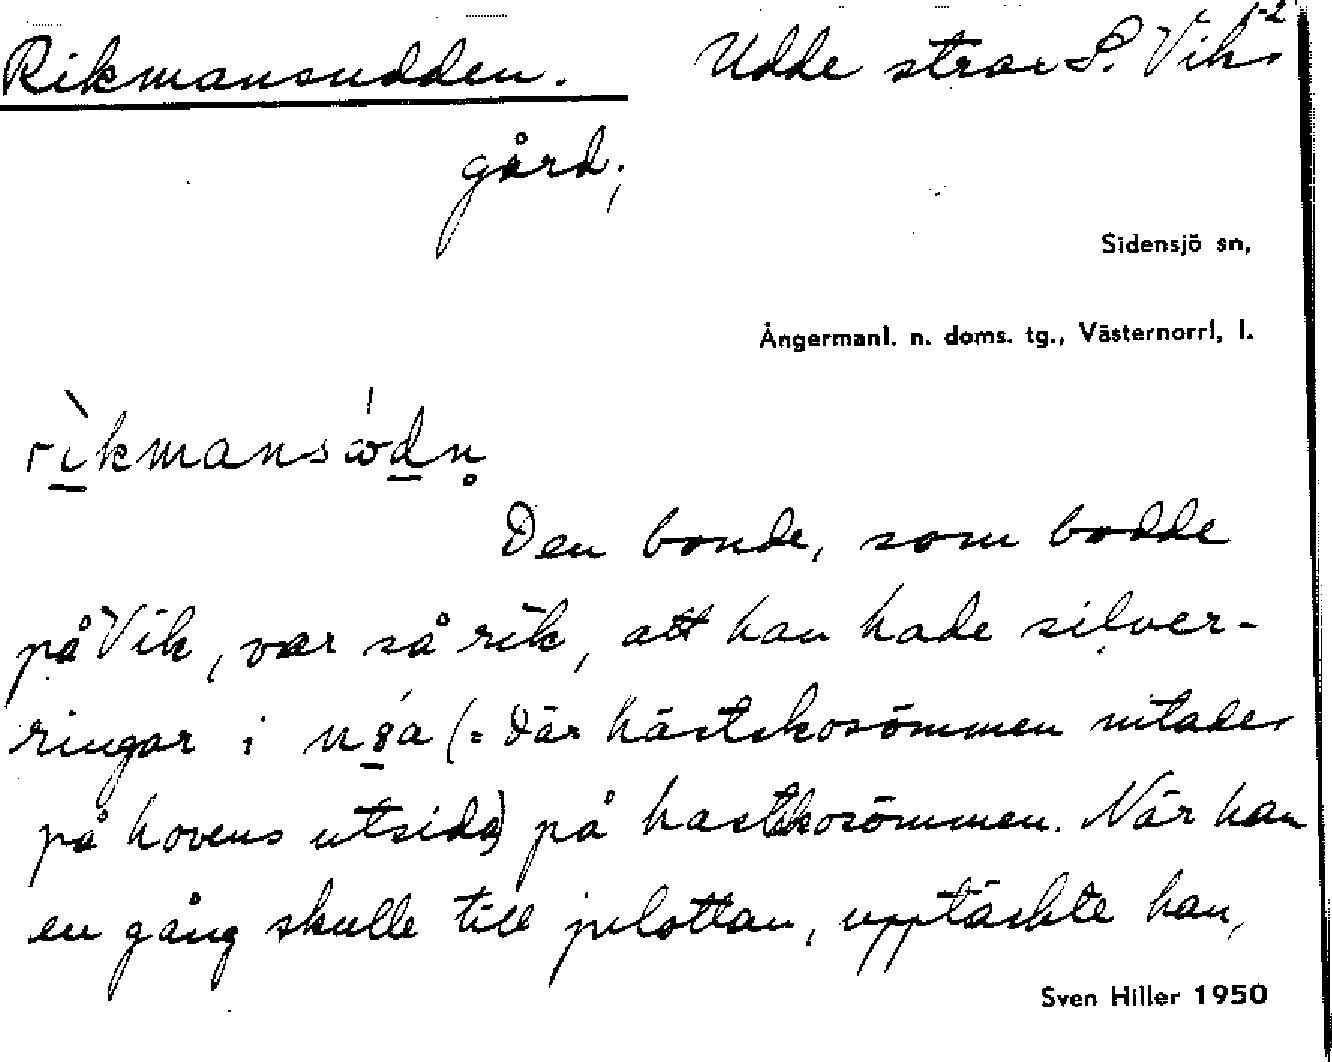 1-2
Rikmansudden. Udde strax S. Viks
gård;
Sidensjö sn,
Ångermanl. n. doms. tg., Västernorrl, l.
Den bonde, som bodde
på Vik, var så rik, att han hade silver-
ringar i (= där hästskosömmen nitades
på hovens utsida) på hästskosömmen. När han
en gång skulle till julottan, upptäckte han,
Sven Hiller 1950